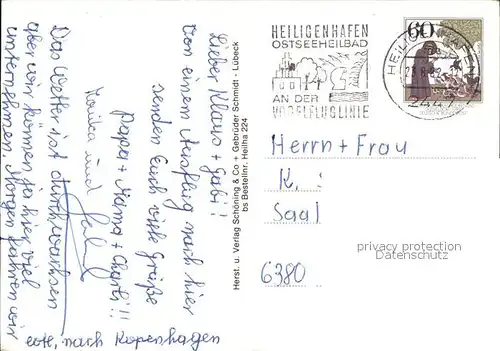 Lieber Klaus + Gabi!!
Von einem Ausflug nach hier
senden Euch viele Grüße
Papa + Mama +
und
Das Wetter ist durchwachsen
aber wir können ja hier viel
unternehmen. Morgen fahren wir
evtl. nach Kopenhagen
Herst. u. Verlag Schöning & Co + Gebrüder Schmidt - Lübeck
bs Bestellnr. Heilha 224
HEILIGENHAFEN
OSTSEEHEILBAD
AN DER
VOGELFLUGLINIE
HEILIGENHAFEN
2447
60
Herrn + Frau
K.
Saal
6380
privacy protection
Datenschutz